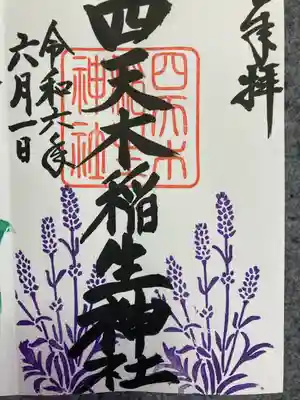 奉拝
四天木稲生神社
四天木
稲生
神社
令和六年
六月一日